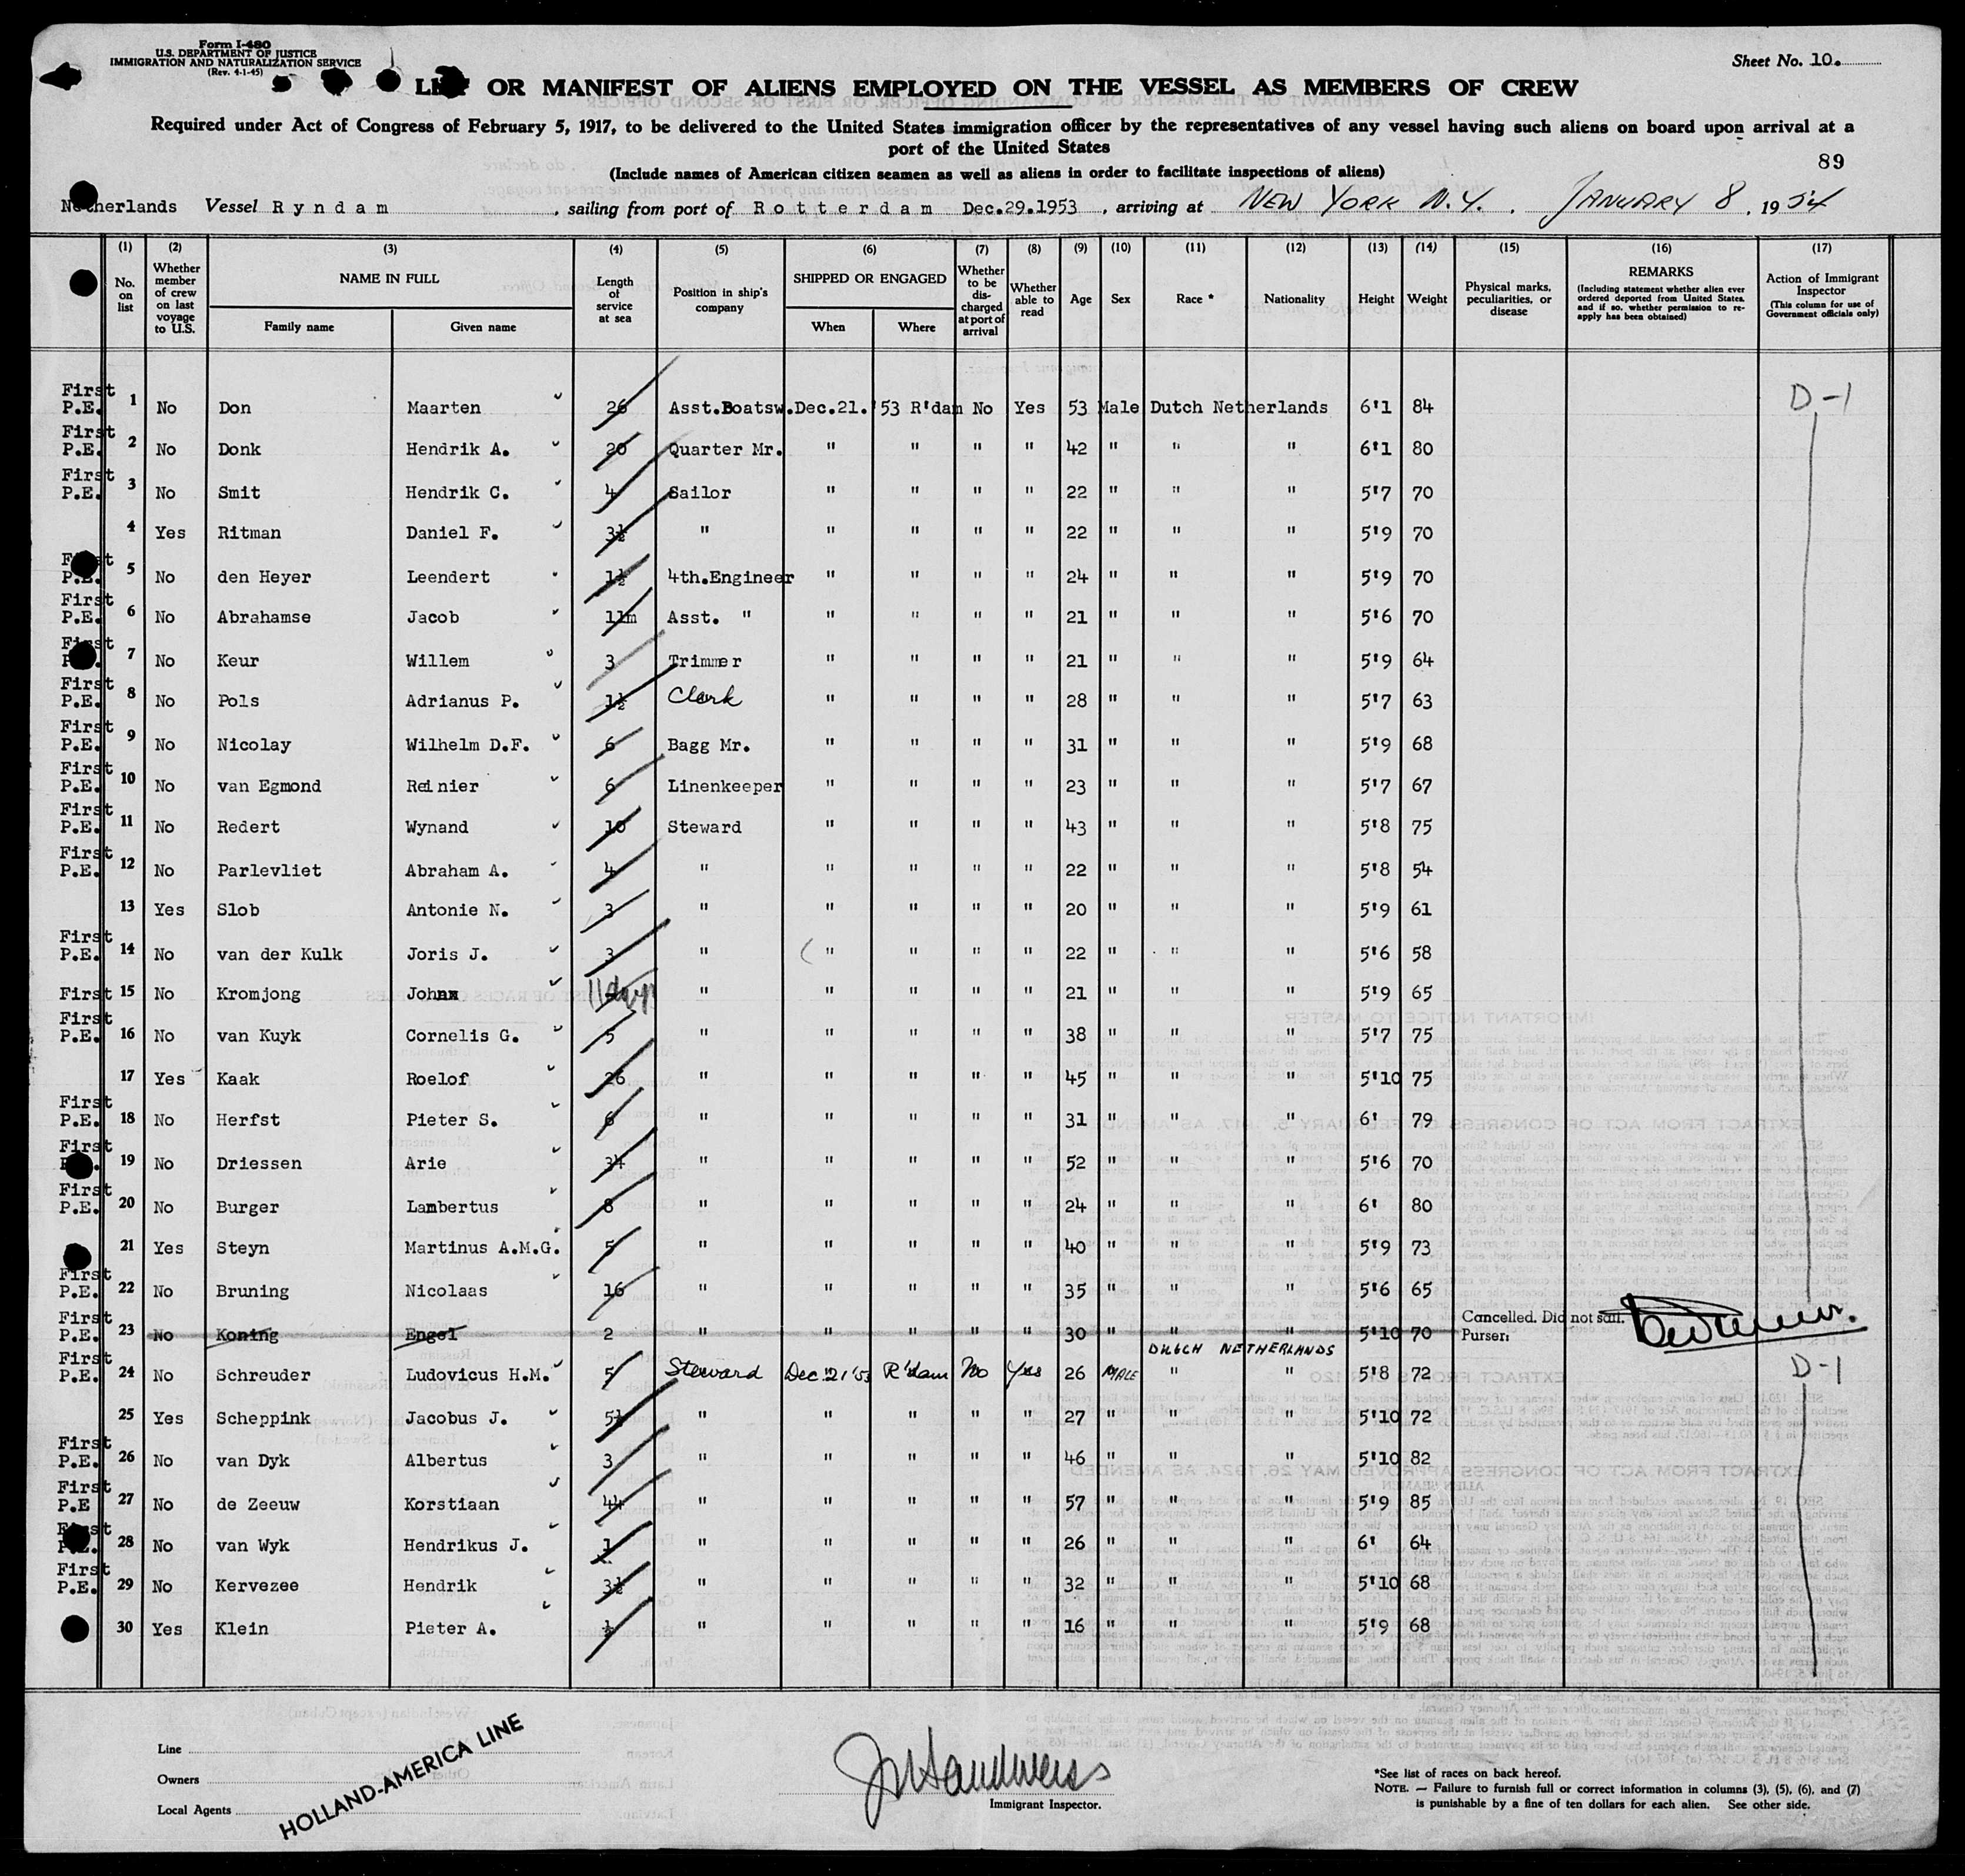 Form I-480
U.S. DEPARTMENT OF JUSTICE
IMMIGRATION AND NATURALIZATION SERVICE
(Rev. 4-1-45)
Sheet No. 10.
OR MANIFEST OF ALIENS EMPLOYED ON THE VESSEL AS MEMBERS OF CREW
Required under Act of Congress of February 5, 1917, to be delivered to the United States immigration officer by the representatives of any vessel having such aliens on board upon arrival at a
port of the United States
89
(Include names of American citizen seamen as well as aliens in order to facilitate inspections of aliens)
Netherlands Vessel Ryndam, sailing from port of Rotterdam Dec.29.1953, arriving at NEW YORK N.Y., JANUARY 8, 1954
(1) No. on list (2) Whether member of crew on last voyage to U.S. (3) NAME IN FULL Family name Given name (4) Length of service at sea (5) Position in ship's company (6) SHIPPED OR ENGAGED When Where (7) Whether to be discharged at port of arrival (8) Whether able to read (9) Age (10) Sex (11) Race * (12) Nationality (13) Height (14) Weight (15) Physical marks, peculiarities, or disease (16) REMARKS (Including statement whether alien ever ordered deported from United States, and if so, whether permission to re-apply has been obtained) (17) Action of Immigrant Inspector (This column for use of Government officials only)
First P.E. 1 No Don Maarten 26 Asst.Boatsw. Dec.21.'53 R'dam No Yes 53 Male Dutch Netherlands 6'1 84 D-1
First P.E. 2 No Donk Hendrik A. 20 Quarter Mr. " " " " 42 " " " 6'1 80
First P.E. 3 No Smit Hendrik C. 4 Sailor " " " " 22 " " " 5'7 70
4 Yes Ritman Daniel F. 3½ " " " " " 22 " " " 5'9 70
First P.E. 5 No den Heyer Leendert 1½ 4th.Engineer " " " " 24 " " " 5'9 70
First P.E. 6 No Abrahamse Jacob 11m Asst. " " " " " 21 " " " 5'6 70
First P.E. 7 No Keur Willem 3 Trimmer " " " " 21 " " " 5'9 64
First P.E. 8 No Pols Adrianus P. 1½ Clerk " " " " 28 " " " 5'7 63
First P.E. 9 No Nicolay Wilhelm D.F. 6 Bagg Mr. " " " " 31 " " " 5'9 68
First P.E. 10 No van Egmond Reinier 6 Linenkeeper " " " " 23 " " " 5'7 67
First P.E. 11 No Redert Wynand 10 Steward " " " " 43 " " " 5'8 75
First P.E. 12 No Parlevliet Abraham A. 4 " " " " " 22 " " " 5'8 54
13 Yes Slob Antonie N. 3 " " " " " 20 " " " 5'9 61
First P.E. 14 No van der Kulk Joris J. 3 " " " " " 22 " " " 5'6 58
First 15 No Kromjong Johnnx 11 days " " " " " 21 " " " 5'9 65
First P.E. 16 No van Kuyk Cornelis G. 5 " " " " " 38 " " " 5'7 75
17 Yes Kaak Roelof 26 " " " " " 45 " " " 5'10 75
First P.E. 18 No Herfst Pieter S. 6 " " " " " 31 " " " 6' 79
First P.E. 19 No Driessen Arie 34 " " " " " 52 " " " 5'6 70
First P.E. 20 No Burger Lambertus 8 " " " " " 24 " " " 6' 80
21 Yes Steyn Martinus A.M.G. 5 " " " " " 40 " " " 5'9 73
First P.E. 22 No Bruning Nicolaas 16 " " " " " 35 " " " 5'6 65
First P.E. 23 No Koning Engel 2 " " " " " 30 " " " 5'10 70 Cancelled. Did not sail. Purser:
DUTCH NETHERLANDS
First P.E. 24 No Schreuder Ludovicus H.M. 5 Steward Dec.'21'53 R'dam No Yes 26 MALE " " 5'8 72 D-1
25 Yes Scheppink Jacobus J. 5½ " " " " " 27 " " " 5'10 72
First P.E. 26 No van Dyk Albertus 3 " " " " " 46 " " " 5'10 82
First P.E 27 No de Zeeuw Korstiaan 44 " " " " " 57 " " " 5'9 85
First P.E. 28 No van Wyk Hendrikus J. 1 " " " " " 26 " " " 6' 64
First P.E. 29 No Kervezee Hendrik 3½ " " " " " 32 " " " 5'10 68
30 Yes Klein Pieter A. ½ " " " " " 16 " " " 5'9 68
Line
Owners
Local Agents
HOLLAND-AMERICA LINE
Immigrant Inspector.
*See list of races on back hereof.
NOTE. — Failure to furnish full or correct information in columns (3), (5), (6), and (7)
is punishable by a fine of ten dollars for each alien. See other side.